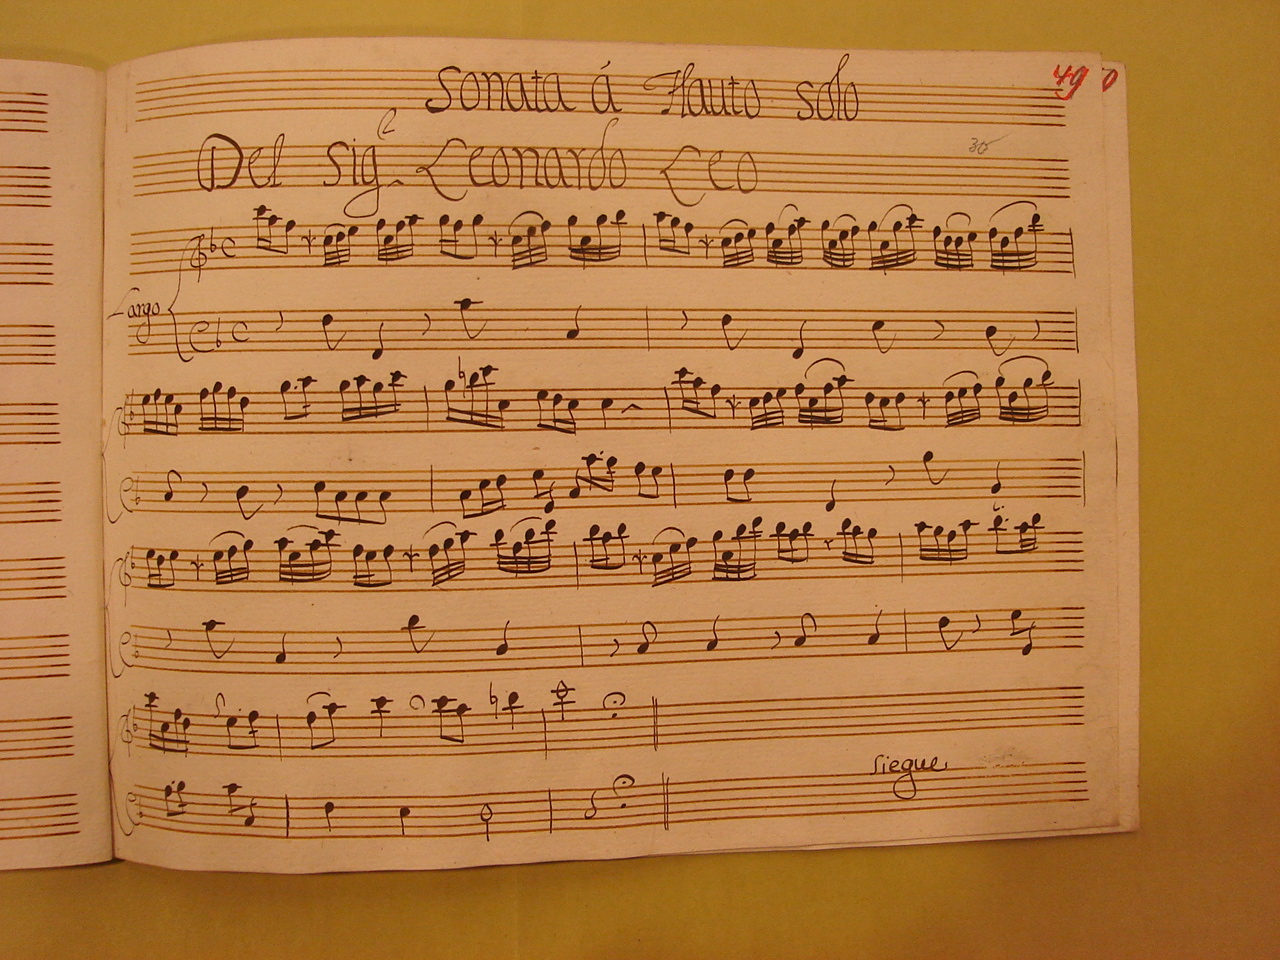 Sonata á Flauto solo
49
Del Sig.r Leonardo Leo
30
Largo
Siegue